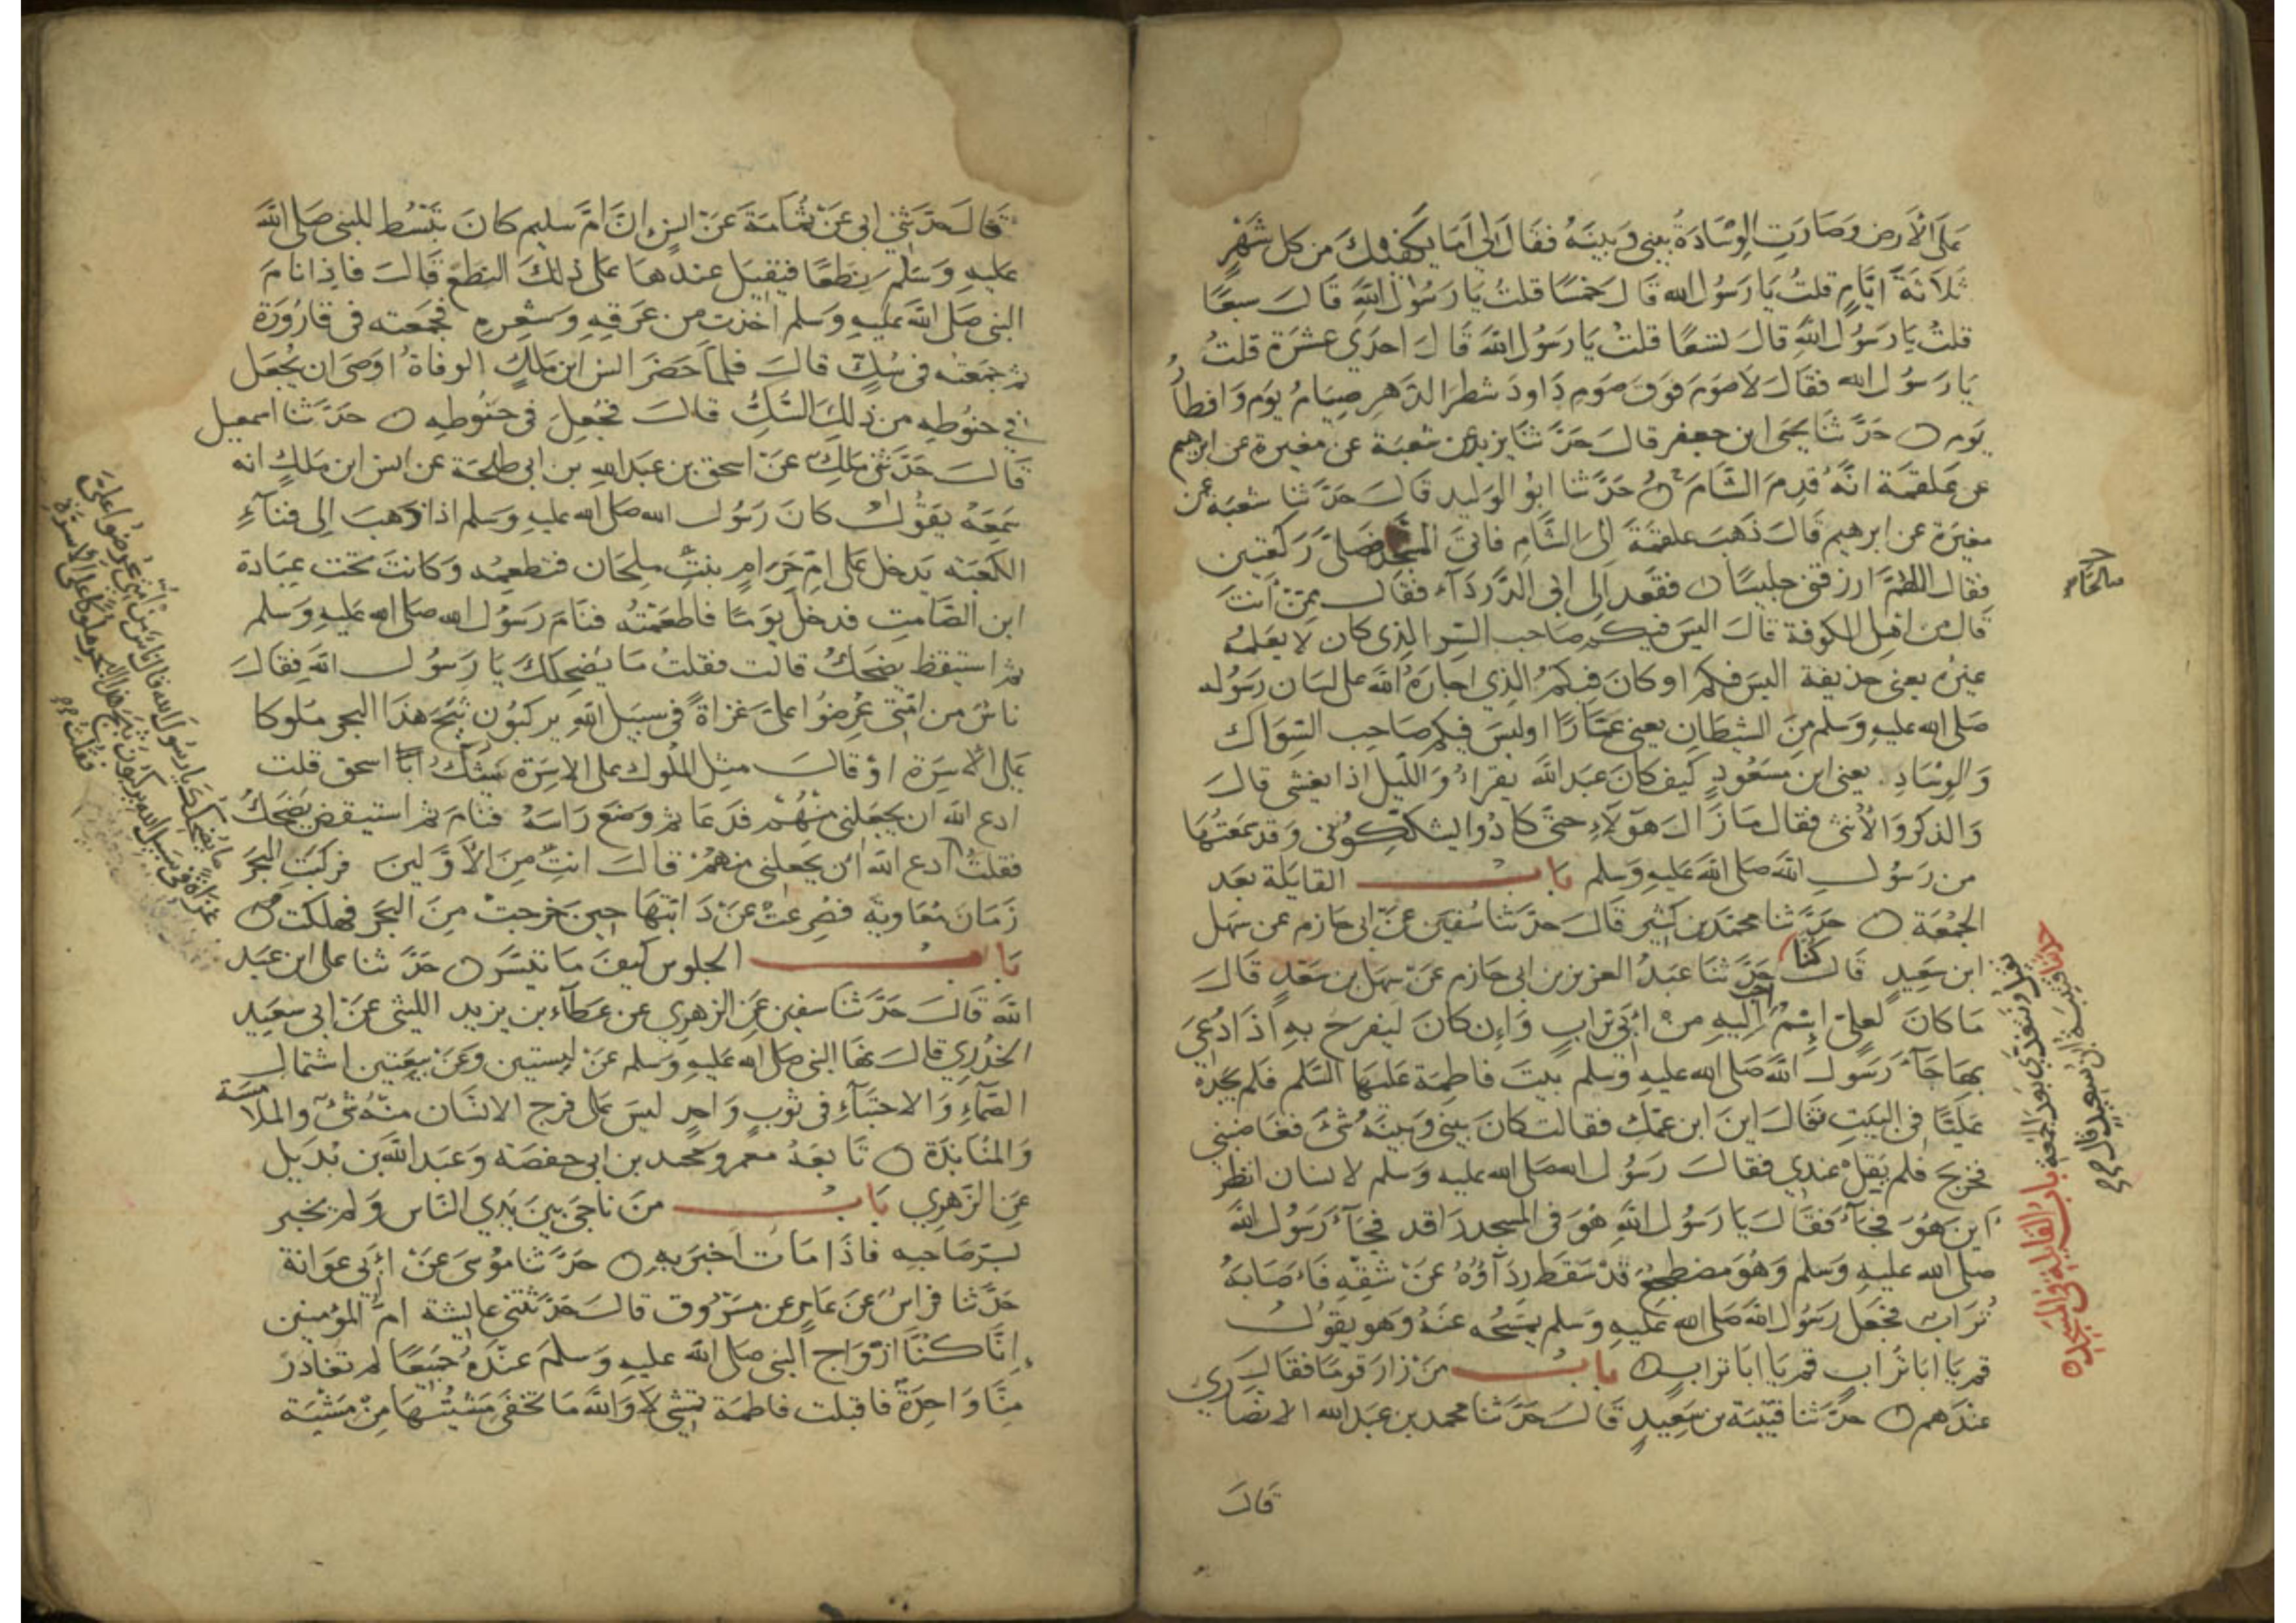 على الأرض وصارت الوسادة بيني وبينه فقال لي اما يكفيك من كل شهر
ثلاثة ايام قلت يا رسول الله قال خمسا قلت يا رسول الله قال سبعا
قلت يا رسول الله قال تسعا قلت يا رسول الله قال احدي عشرة قلت
يا رسول الله فقال لا صوم فوق صوم داود شطر الدهر صيام يوم وافطار
يوم حدثنا يحيى ابن جعفر قال حدثنا يزيد عن شعبة عن مغيرة عن ابرهيم
عن علقمة انه قدم الشام حدثنا ابو الوليد قال حدثنا شعبة عن
مغيرة عن ابرهيم قال ذهب علقمة الى الشام فاتى المسجد فصلى ركعتين
فقال اللهم ارزقني جليسا فقعد الى ابي الدرداء فقال ممن انت
قال من اهل الكوفة قال اليس فيكم صاحب السر الذي كان لا يعلمه
غيره يعني حذيفة اليس فيكم او كان فيكم الذي اجاره الله على لسان رسوله
صلى الله عليه وسلم من الشيطان يعني عمارا اوليس فيكم صاحب السواك
والوساد يعني ابن مسعود كيف كان عبد الله يقراء والليل اذا يغشى قال
والذكر والأنثى فقال ما زال هؤلاء حتى كادوا يشككوني وقد سمعتها
من رسول الله صلى الله عليه وسلم باب القايلة بعد
الجمعة حدثنا محمد بن كثير قال حدثنا سفين عن ابي حازم عن سهل
ابن سعيد قال كنا حدثنا عبد العزيز بن ابي حازم عن سهل بن سعد قال
ما كان لعلي إسم احب اليه من أبي تراب وإن كان ليفرح به اذا دعي
بها جاء رسول الله صلى الله عليه وسلم بيت فاطمة عليها السلم فلم يجد
عليا في البيت فقال اين ابن عمك فقالت كان بيني وبينه شئ فغاضبني
فخرج فلم يقل عندي فقال رسول الله صلى الله عليه وسلم لانسان انظر
اين هو فجاء فقال يا رسول الله هو في المسجد راقد فجاء رسول الله
صلى الله عليه وسلم وهو مضطجع قد سقط رداؤه عن شقه فاصابه
تراب فجعل رسول الله صلى الله عليه وسلم يمسحه عنه وهو يقول
قم يا ابا تراب قم يا ابا تراب باب من زار قوما فقال
عندهم حدثنا قتيبة بن سعيد قال حدثنا محمد بن عبد الله الانصاري
قال
نقيل ونتغدى بعد الجمعة باب القايلة في المسجد
حدثنا قتيبة ابن سعيد قال
قال حدثني ابي عن ثمامة عن انس ان ام سليم كان تبسط للنبي صلى الله
عليه وسلم نطعا فيقيل عندها على ذلك النطع قال فاذا نام
النبي صلى الله عليه وسلم اخذت من عرقه وشعره فجمعته في قارورة
ثم جمعته في سك قال فلما حضر انس ابن ملك الوفاة اوصى ان يجعل
في حنوطه من ذلك السك قال فجعل في حنوطه حدثنا اسمعيل
قال حدثني ملك عن اسحق بن عبد الله بن ابي طلحة عن انس ابن ملك انه
سمعه يقول كان رسول الله صلى الله عليه وسلم اذا ذهب الى فناء
الكعبة يدخل على ام حرام بنت ملحان فتطعمه وكانت تحت عبادة
ابن الصامت فدخل يوما فاطعمته فنام رسول الله صلى الله عليه وسلم
ثم استيقظ يضحك قالت فقلت ما يضحكك يا رسول الله فقال
ناس من امتي عرضوا علي غزاة في سبيل الله يركبون ثبج هذا البحر ملوكا
على الاسرة او قال مثل الملوك على الاسرة يشك ابا اسحق قلت
ادع الله ان يجعلني منهم فدعا ثم وضع راسه فنام ثم استيقض يضحك
فقلت ادع الله ان يجعلني منهم قال انت من الأولين فركبت البحر
زمان معاوية فصرعت عن دابتها حين خرجت من البحر فهلكت
باب الجلوس كيف ما تيسر حدثنا على ابن عبد
الله قال حدثنا سفين عن الزهري عن عطاء بن يزيد الليثي عن ابي سعيد
الخدري قال نها النبي صلى الله عليه وسلم عن لبستين وعن بيعتين اشتمال
الصماء والاحتباء في ثوب واحد ليس على فرج الانسان منه شئ والملامسة
والمنابذة تابعه معمر ومحمد بن ابي حفصة وعبد الله بن بديل
عن الزهري باب من ناجى بين يدي الناس ولم يخبر
بسر صاحبه فاذا مات اخبر به حدثنا موسى عن أبي عوانة
حدثنا فراس عن عامر عن مسروق قال حدثتني عايشة ام المؤمنين
إنا كنا ازواج النبي صلى الله عليه وسلم عنده جميعا لم تغادر
منا واحدة فاقبلت فاطمة تمشي لا والله ما تخفى مشيتها من مشية
ما يضحكك يا رسول الله قال ناس من أمتي عرضوا علي
غزاة في سبيل الله يركبون ثبج هذا البحر ملوكا على الاسرة
فقلت